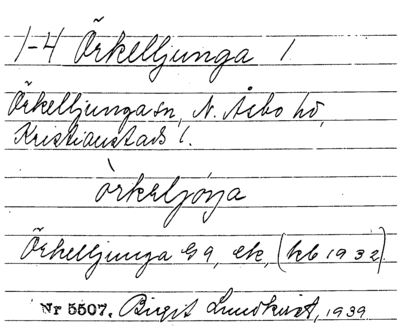 1-4 Örkelljunga 1
Örkelljunga sn, N. Åsbo hd,
Kristianstads l.
òrkeljoṇa
Örkelljunga G 9, ek, (hb 1932)
Nr 5507. Birgit Lundkvist, 1939